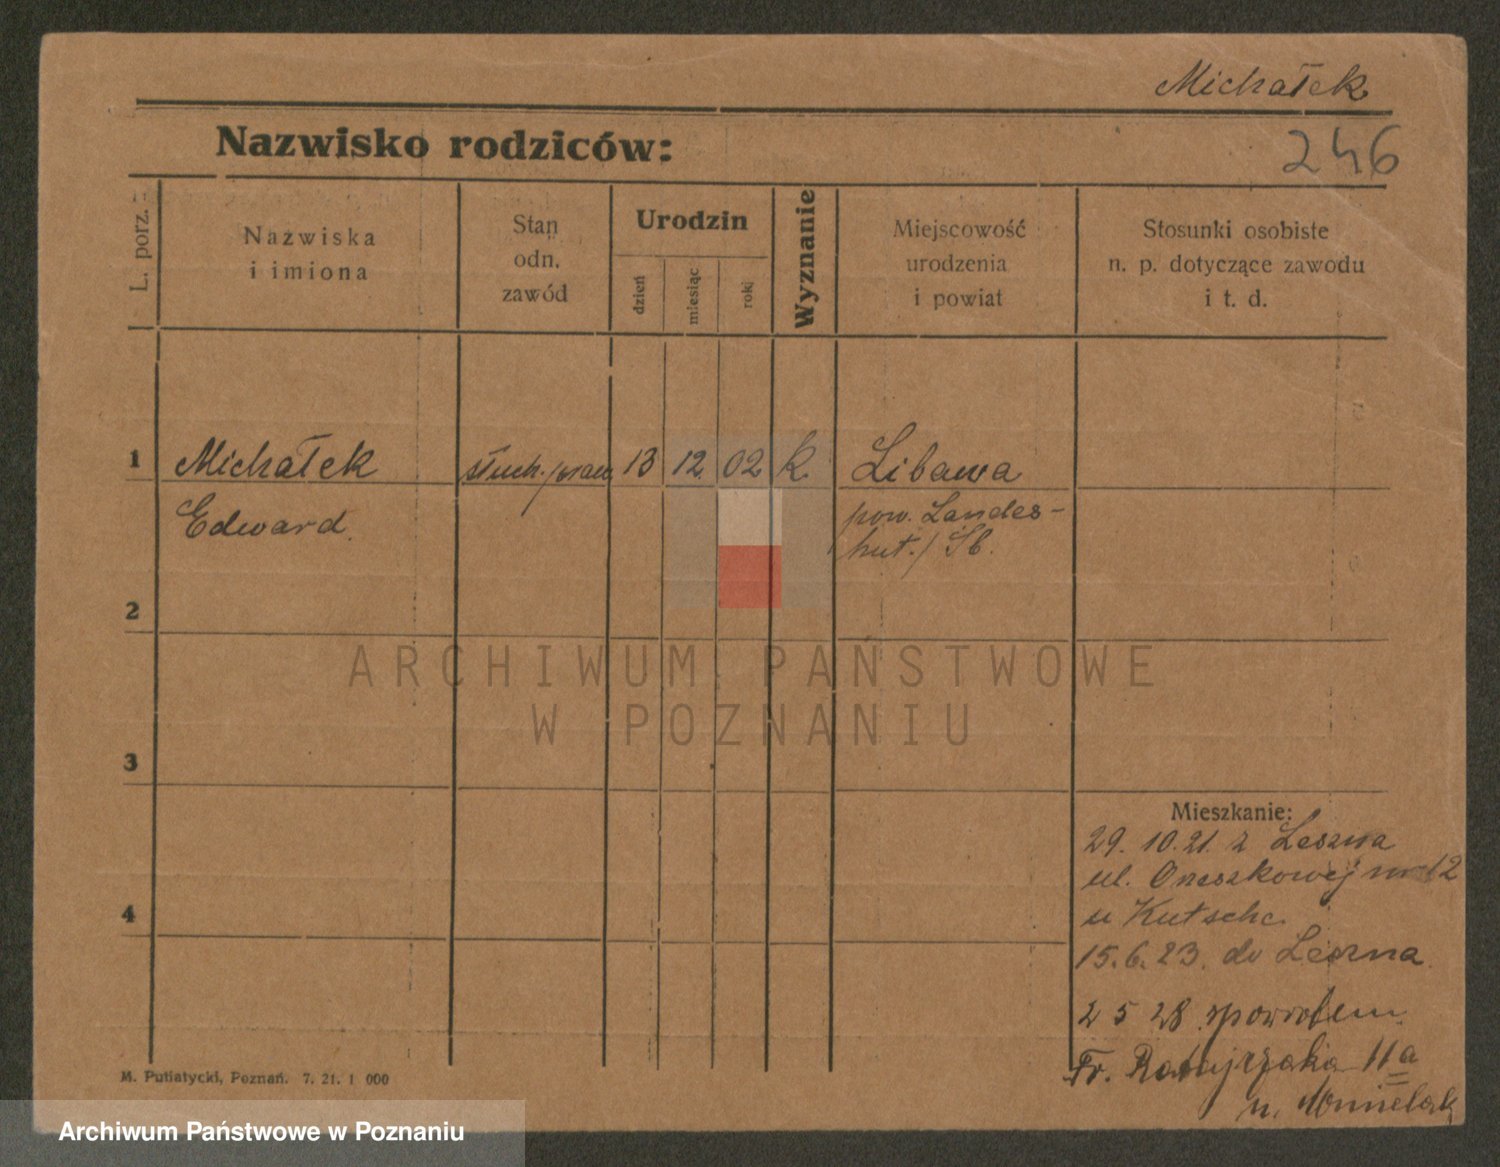 Michałek
246
Nazwisko rodziców:
L. porz.
Nazwiska
i imiona
Stan
odn.
zawód
Urodzin
dzień
miesiąc
rok
Wyznanie
Miejscowość
urodzenia
i powiat
Stosunki osobiste
n. p. dotyczące zawodu
i t. d.
1
Michałek słuch. 13 12 02 k. Libawa
Edward. pow. Landes-
hut./
2
ARCHIWUM PAŃSTWOWE
W POZNANIU
3
Mieszkanie:
29. 10. 21. z Leszna
ul. Orzeszkowej nr 12
u Kutsche.
4
15. 6. 23. do Leszna.
2 5 28 spowrotem
Fr. Ratajczaka 11a
u.
M. Putiatycki, Poznań. 7. 21. 1 000
Archiwum Państwowe w Poznaniu